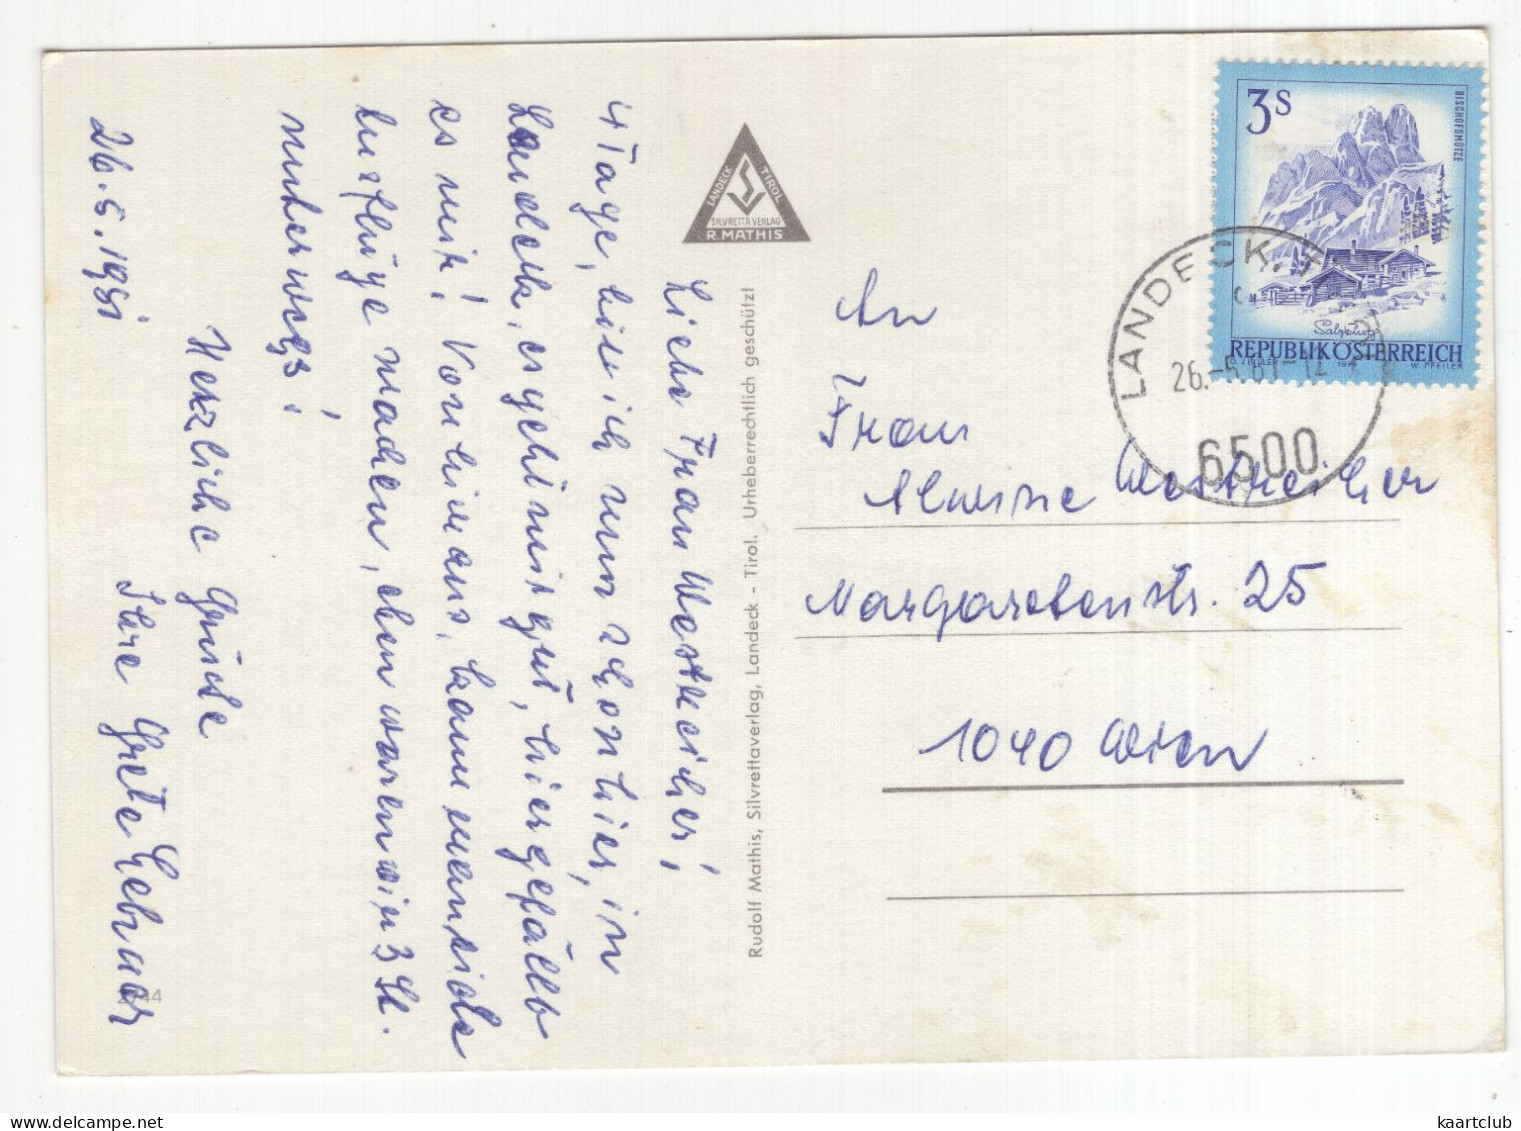 26.5.1981
Liebe Frau Westreicher!
4 Tage, bin ich nun schon hier, in
Landeck, es geht mir gut, hier gefällt
es mir! Von hier aus, kann man viele
Ausflüge machen, eben waren wir 3 St.
unterwegs!
Herzliche Grüße
Ihre Grete
2144
LANDECK TIROL
SILVRETTA VERLAG
R. MATHIS
Rudolf Mathis, Silvrettaverlag, Landeck - Tirol. Urheberrechtlich geschützt
3S
BISCHOFSMÜTZE
Salzburg
REPUBLIK ÖSTERREICH
O. ZEILLER
W. PFEILER
LANDECK, T
26.-5.81-12
6500
An
Frau
Alwine Westreicher
Margaretenstr. 25
1040 Wien
kaartclub